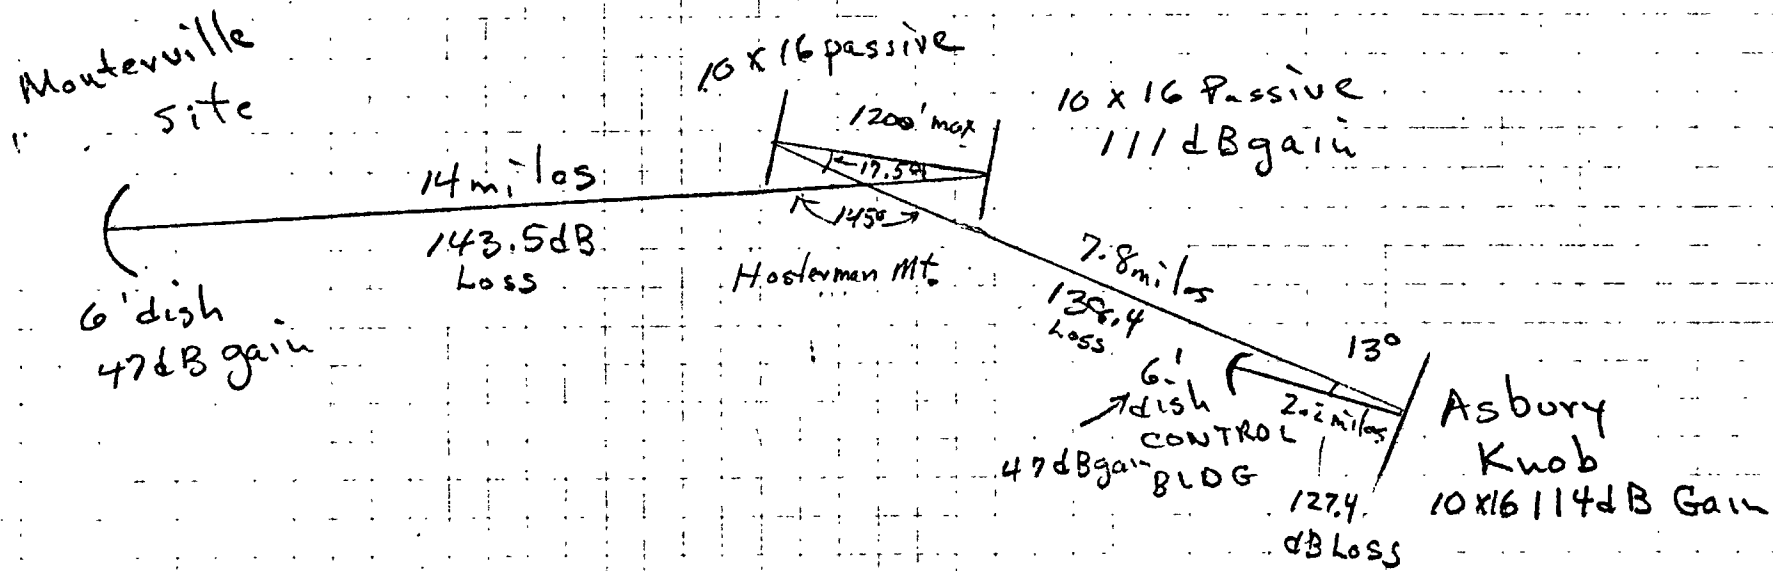 Monterville
site
10 x 16 passive
10 x 16 Passive
111 dB gain
1200' max
17.5°
14 miles
143.5dB
Loss
145°
Hosterman Mt.
6' dish
47dB gain
7.8 miles
138.4
Loss
13°
6'
dish
CONTROL
BLDG
47dBgain
2.2 miles
127.4
dB Loss
Asbury
Knob
10x16 114dB Gain